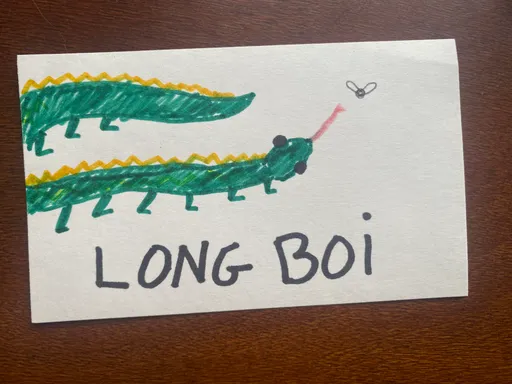 LONG BOi